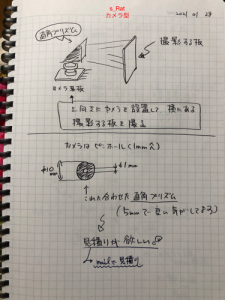 s_Rat
カメラ型
2021 01 28
直角プリズム
撮影する板
カメラ基板
上向きにカメラを設置して、横にある
撮影する板を撮る
カメラはピンホール(1mm穴)
φ10mm
φ1mm
これに合わせた直角プリズム
(5mmで良い気がしてる)
見積りが欲しい
mailで見積り